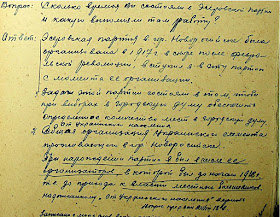 Вопрос: Сколько времени Вы состояли в Эсеровской партии
и какую выполняли там работу?
Ответ: Эсеровская партия в гор. Новороссийске была
организована в 1917 г. в скоре после Февраль-
ской революции, вступил я в эту партию
с момента ее организации.
Задачи этой партии состояли в том, чтобы
при выборах в городскую думу обеспечить
определенное количество мест в городскую думу
2 Общая организация Украинского
проживающую в гор. Новороссийск.
При нарождении партии я был одним из
организаторов в которой был до начала 1918 г.
т.е. до прихода к власти местных большевиков